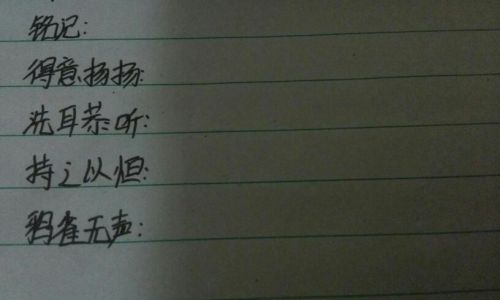 铭记:
得意扬扬:
洗耳恭听:
持之以恒:
鸦雀无声: